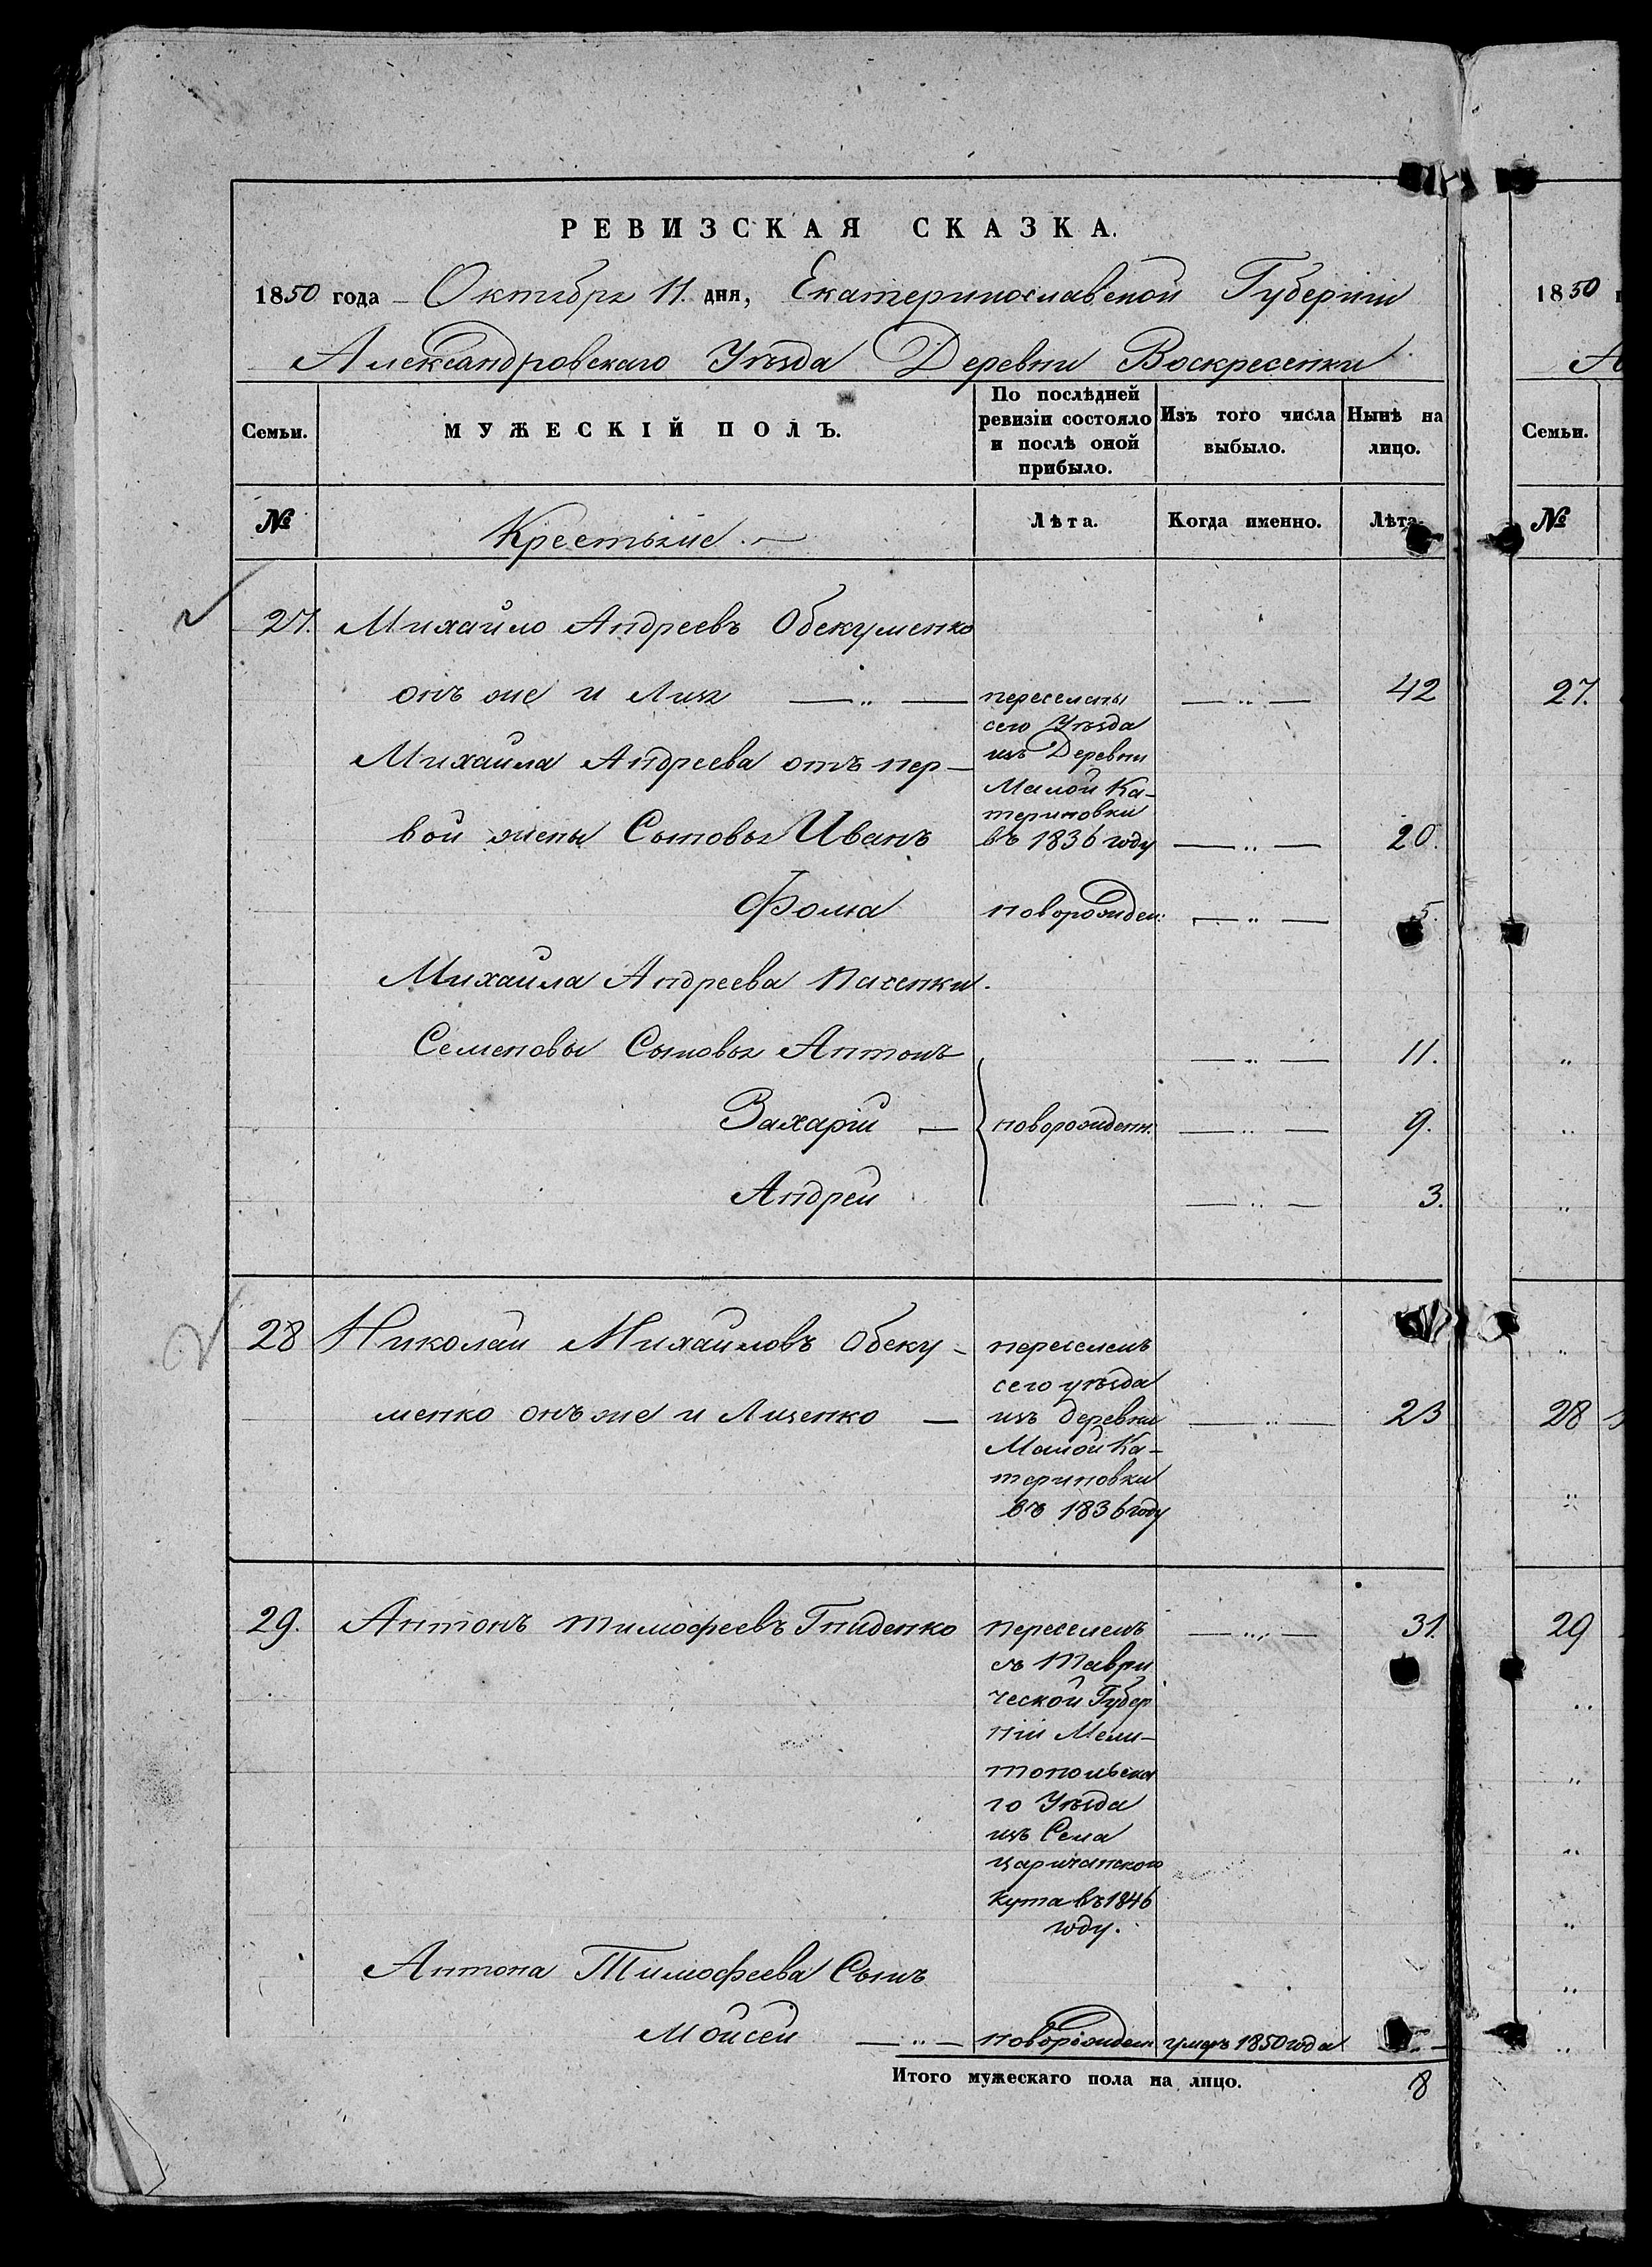 РЕВИЗСКАЯ СКАЗКА.
1850 года Октября 11. дня, Екатеринославской Губернии
Александровскаго Уѣзда Деревни Воскресенки
Семьи.
МУЖЕСКІЙ ПОЛЪ.
По послѣдней
ревизіи состояло
и послѣ оной
прибыло.
Изъ того числа
выбыло.
Нынѣ на
лицо.
№
Крестьяне.
Лѣта.
Когда именно.
Лѣта.
27. Михайло Андреевъ Обекуменко
онъ же и — „ — переселены — „ — 42
сего Уѣзда
Михаила Андреева отъ пер- изъ Деревни
Малой Ка-
териновки
вой жены Сыновья Иванъ въ 1836 году — „ — 20.
Фома новорожден: — „ — 5.
Михаила Андреева
Семеновы Сыновья Антонъ — „ — 11.
Захарій — новорожденн. — „ — 9.
Андрей — „ — 3.
28 Николай Михайловъ Обеку- переселенъ
сего уѣзда
менко онъ же и Лиценко — изъ деревни — „ — 23
Малой Ка-
териновки
въ 1836 году
29. Антонъ Тимофеевъ Гниденко переселенъ — „ — 31.
съ Таври
ческой Губер
ніи Мели-
топольска
го Уѣзда
изъ Села
царичанского
кута въ 1846
году.
Антона Тимофеева Сынъ
Мойсей — „ — новорожден умеръ 1850 года
Итого мужескаго пола на лицо. 8
1850
Семьи.
№
27.
„
„
„
„
28
„
29
„
„
„
„
„
„